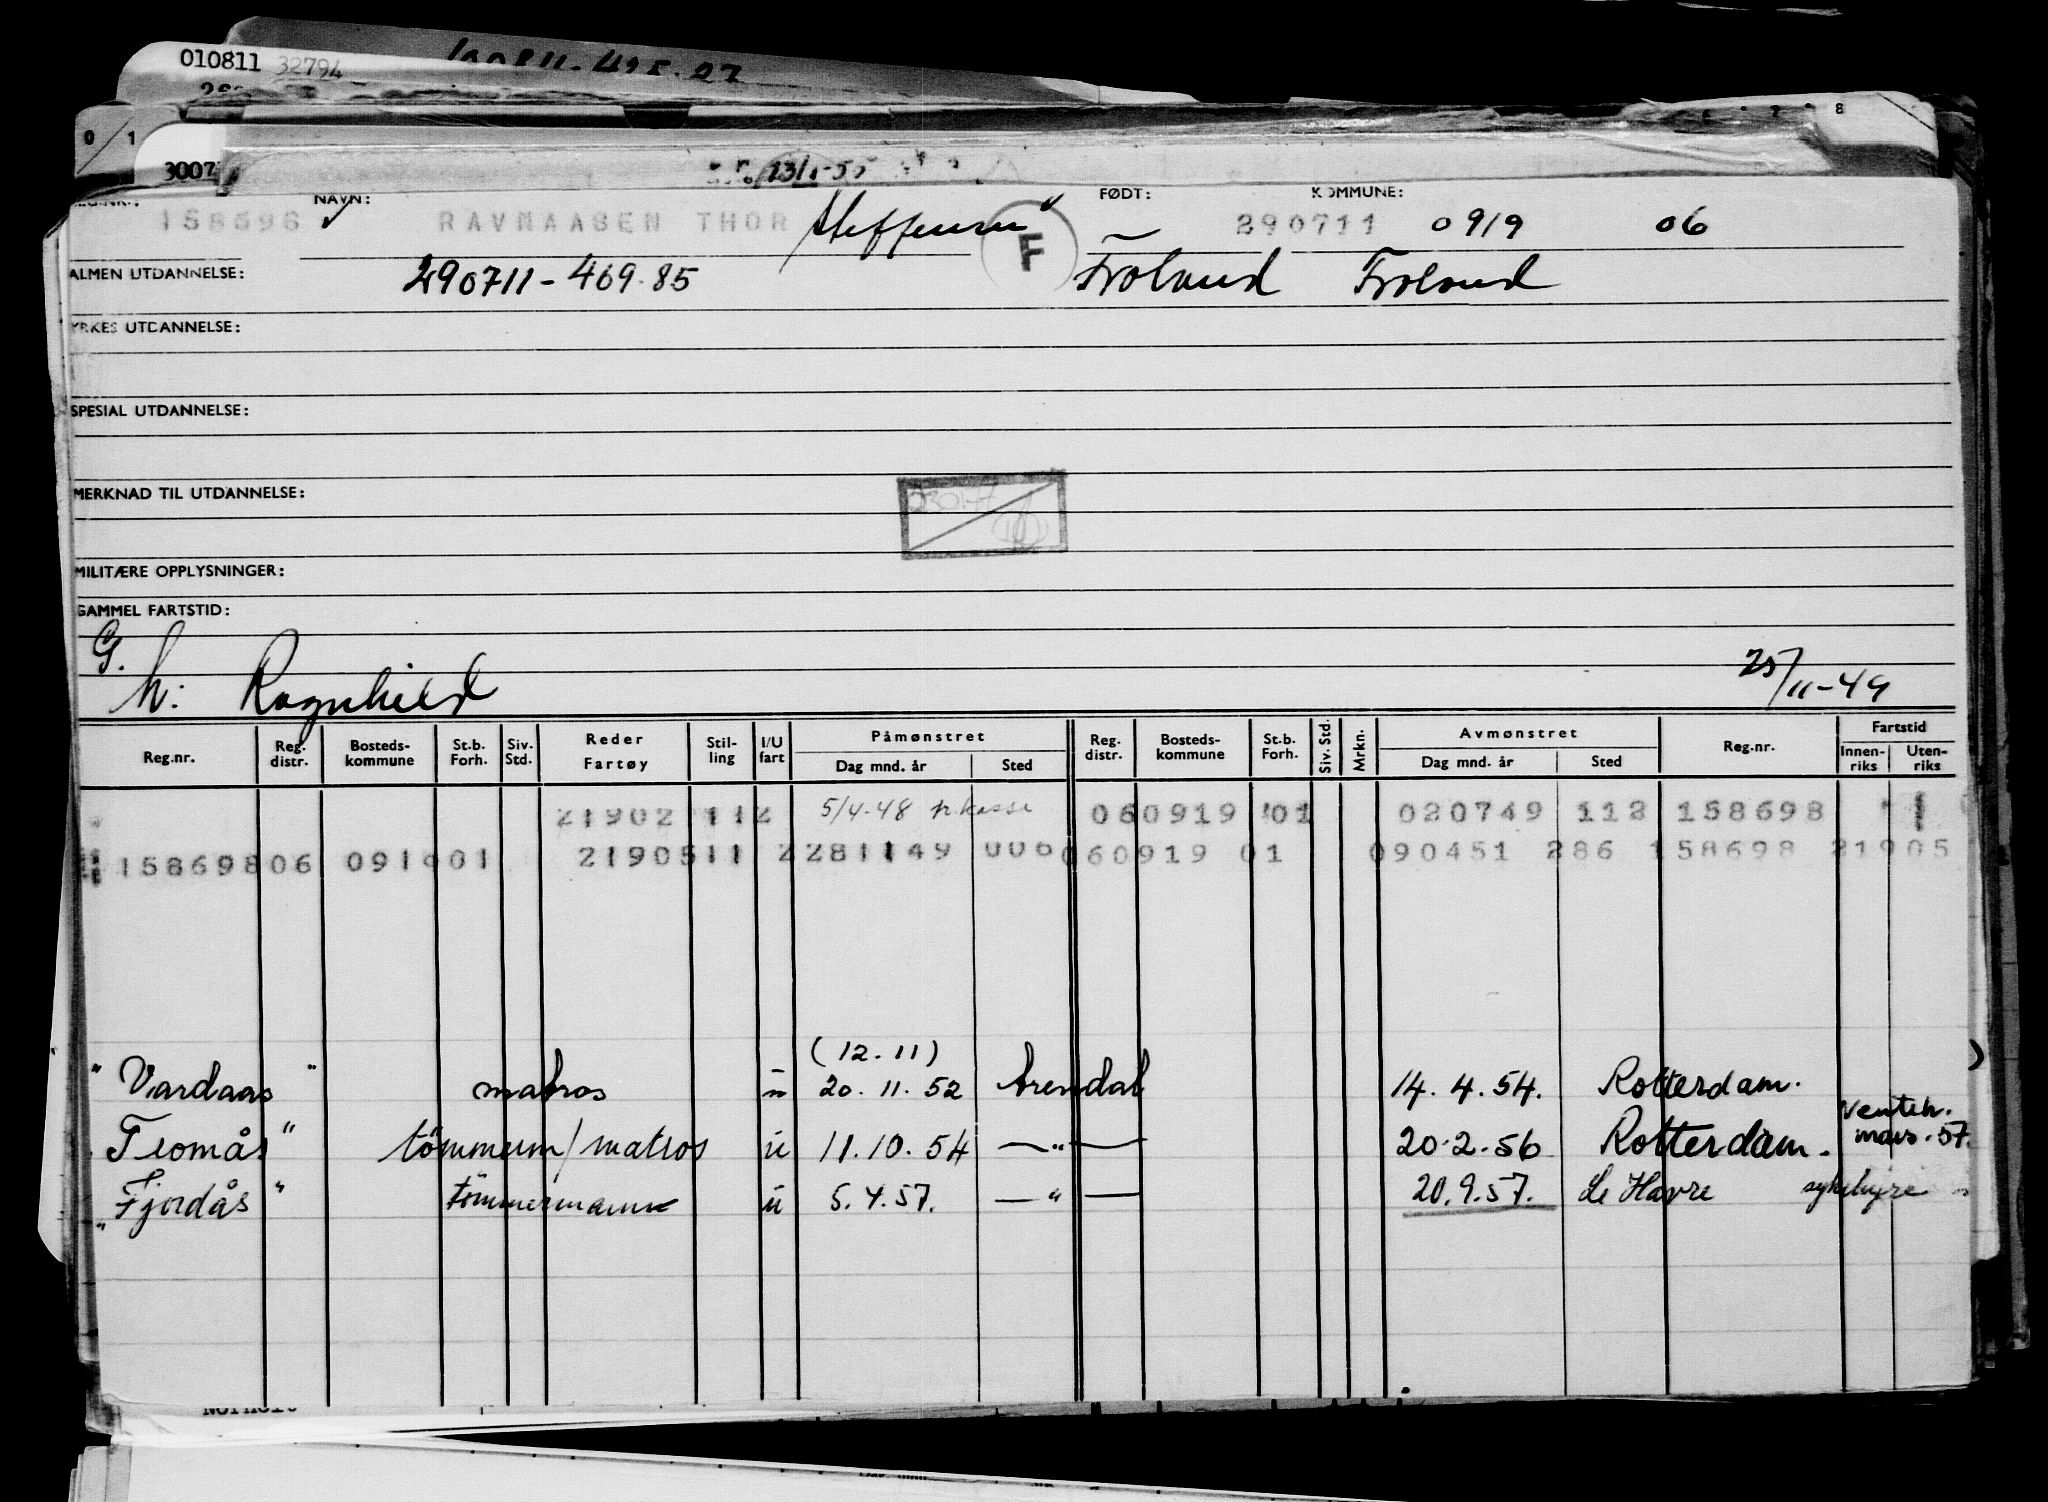 010811 32794
0 1
8
3007
23/1-55
NAVN: FØDT: KOMMUNE:
RAVNAASEN THOR Steffensen F 290711 0919 06
ALMEN UTDANNELSE: 290711-469.85 Froland Froland
YRKES UTDANNELSE:
SPESIAL UTDANNELSE:
MERKNAD TIL UTDANNELSE:
MILITÆRE OPPLYSNINGER:
GAMMEL FARTSTID:
G.
h: Ragnhild 25/11-49
Reg.nr. Reg. distr. Bosteds-kommune St.b. Forh. Siv. Std. Reder Fartøy Stil-ling I/U fart Påmønstret Dag mnd. år Sted Reg. distr. Bosteds-kommune St.b. Forh. Siv. Std. Mrkn. Avmønstret Dag mnd. år Sted Reg.nr. Fartstid Innen-riks Uten-riks
21902 112 5/4-48 060919 01 020749 112 158698
15869806 2190511 2281149 006 060919 01 090451 286 158698 21905
(12.11)
"Vardaas" matros u 20.11.52 Arendal 14.4.54. Rotterdam.
venteh.
Tromås" tömmerm/matros u 11.10.54 —"— 20.2.56 Rotterdam. mars.57.
"Fjordås" tömmermann u 5.4.57. —"— 20.9.57. Le Havre sykehyre